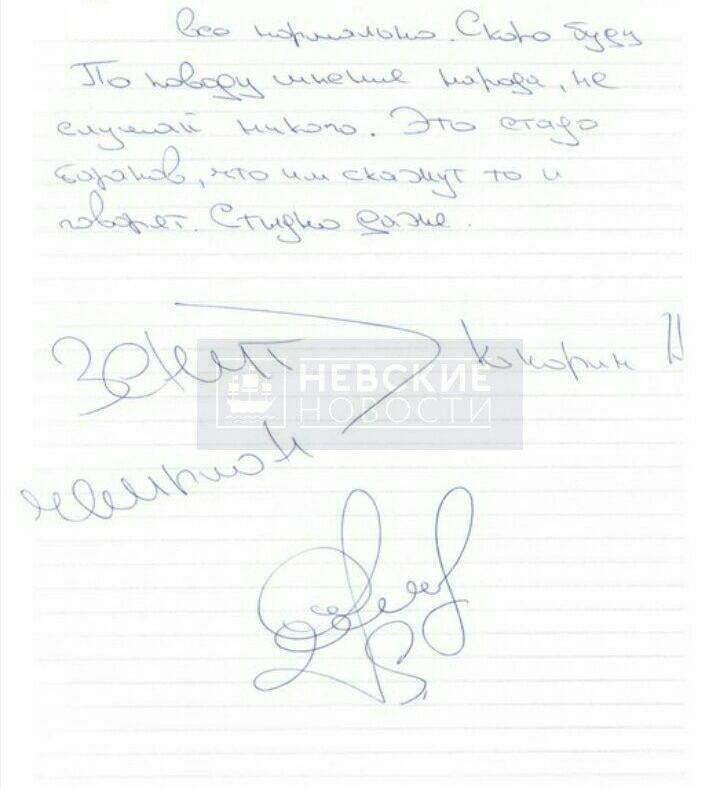 все нормально. Скоро буду
По поводу мнение народа, не
слушай никого. Это стадо
баранов, что им скажут то и
говорят. Стыдно даже.
Зенит Кокорин 11
НЕВСКИЕ
НОВОСТИ
чемпион